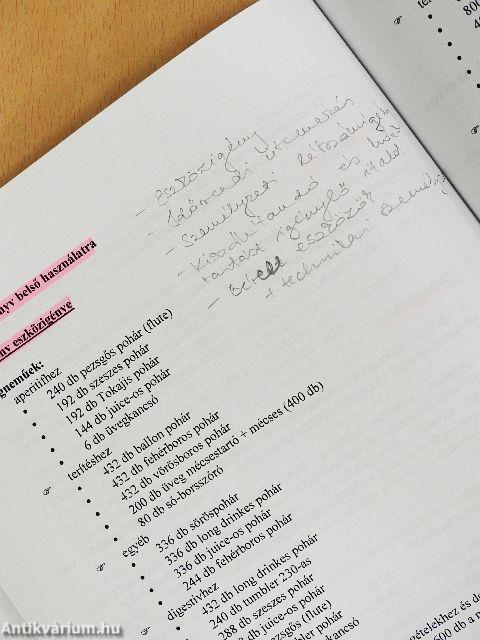 - Eszközigény
- Időrendi ütemezés
- Személyzeti létszámigény
- Kiszállítandó és
tartást igénylő italok
- Bérelt eszközök
+ technikai személyzet
yv belső használatra
ny eszközigénye
gneműek:
aperitifhez
• 240 db pezsgős pohár (flute)
• 192 db szeszes pohár
• 192 db Tokajis pohár
• 144 db juice-os pohár
• 6 db üvegkancsó
☞ terítéshez
• 432 db ballon pohár
• 432 db fehérboros pohár
• 432 db vörösboros pohár
• 200 db üveg mécsestartó + mécses (400 db)
• 80 db só-borsszóró
☞ egyéb
• 336 db söröspohár
• 336 db long drinkes pohár
• 336 db juice-os pohár
• 244 db fehérboros pohár
☞ digestivhez
• 432 db long drinkes pohár
• 240 db tumbler 230-as
288 db szeszes pohár
db juice-os pohár
pezsgős (flute)
pohár
kancsó
ételekhez és de
500 db a
800
Antikvárium.hu